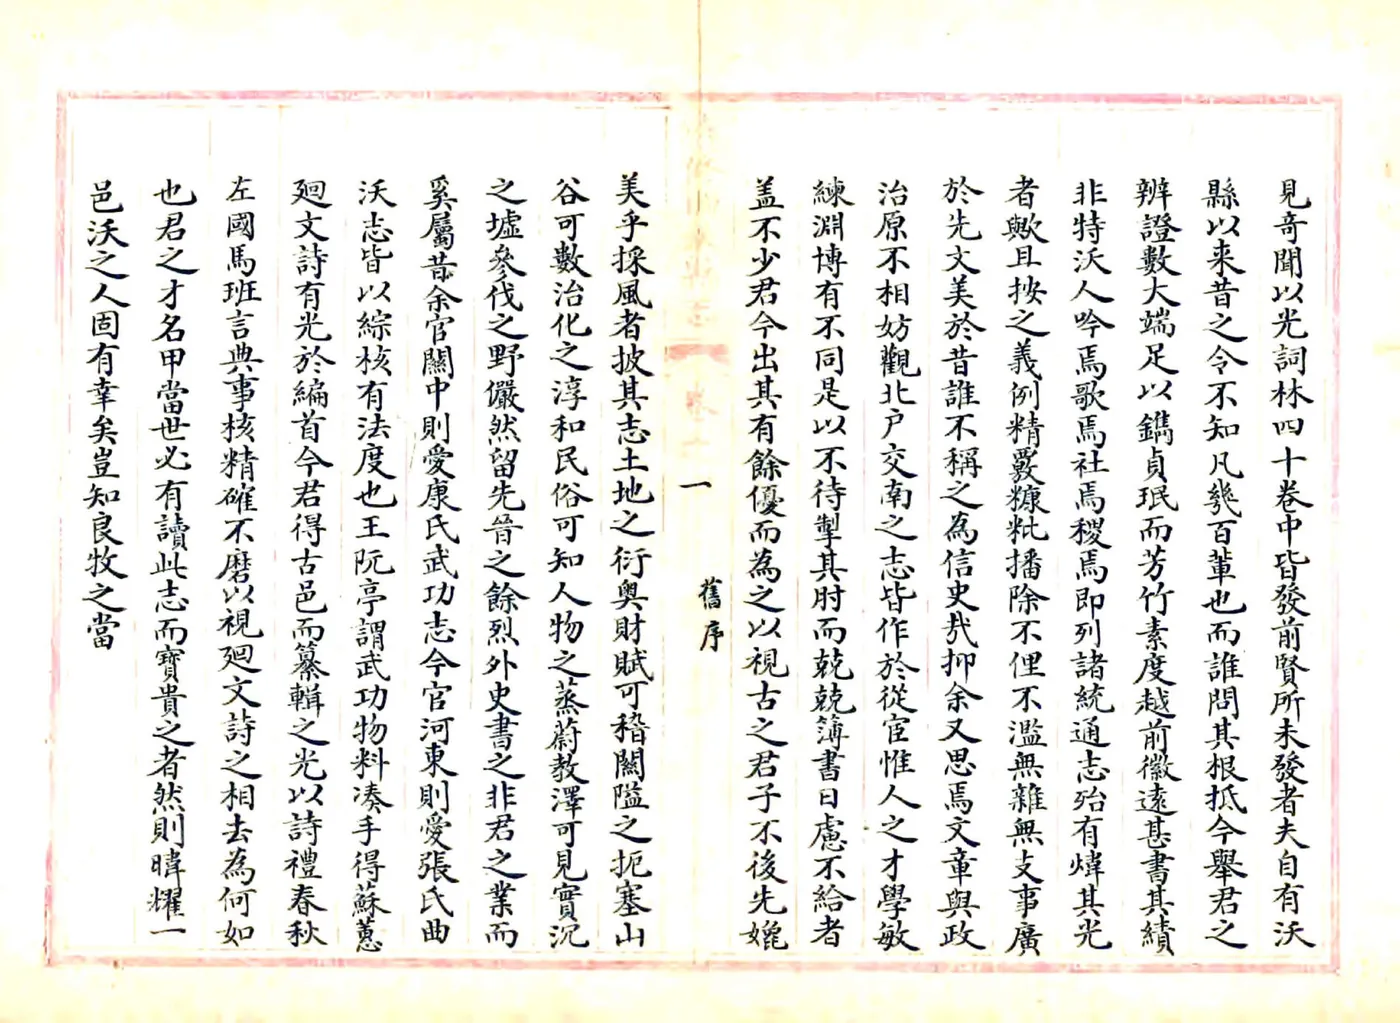 見奇聞以光詞林四十卷中皆發前賢所未發者夫自有沃
縣以来昔之令不知凡幾百輩也而誰問其根抵今舉君之
辨證數大端足以鐫貞珉而芳竹素度越前徽遠甚書其績
非特沃人吟焉歌焉社焉稷焉即列諸統通志殆有煒其光
者歟且按之義例精覈糠粃播除不俚不濫無雜無支事廣
於先文美於昔誰不稱之為信史㢤抑余又思焉文章與政
治原不相妨觀北户交南之志皆作於從宦惟人之才學敏
練淵博有不同是以不待掣其肘而兢兢簿書日慮不給者
盖不少君今出其有餘優而為之以視古之君子不後先媲
舊序
一
美乎採風者披其志土地之衍奥財賦可稽關隘之扼塞山
谷可數治化之淳和民俗可知人物之蒸蔚教澤可見實沉
之墟參伐之野儼然留先晉之餘烈外史書之非君之業而
奚屬昔余官關中則愛康氏武功志今官河東則愛張氏曲
沃志皆以綜核有法度也王阮亭謂武功物料凑手得蘇蕙
廻文詩有光於編首今君得古邑而纂輯之光以詩禮春秋
左國馬班言典事核精確不磨以視廻文詩之相去為何如
也君之才名甲當世必有讀此志而寶貴之者然則暐耀一
邑沃之人固有幸矣豈知良牧之當